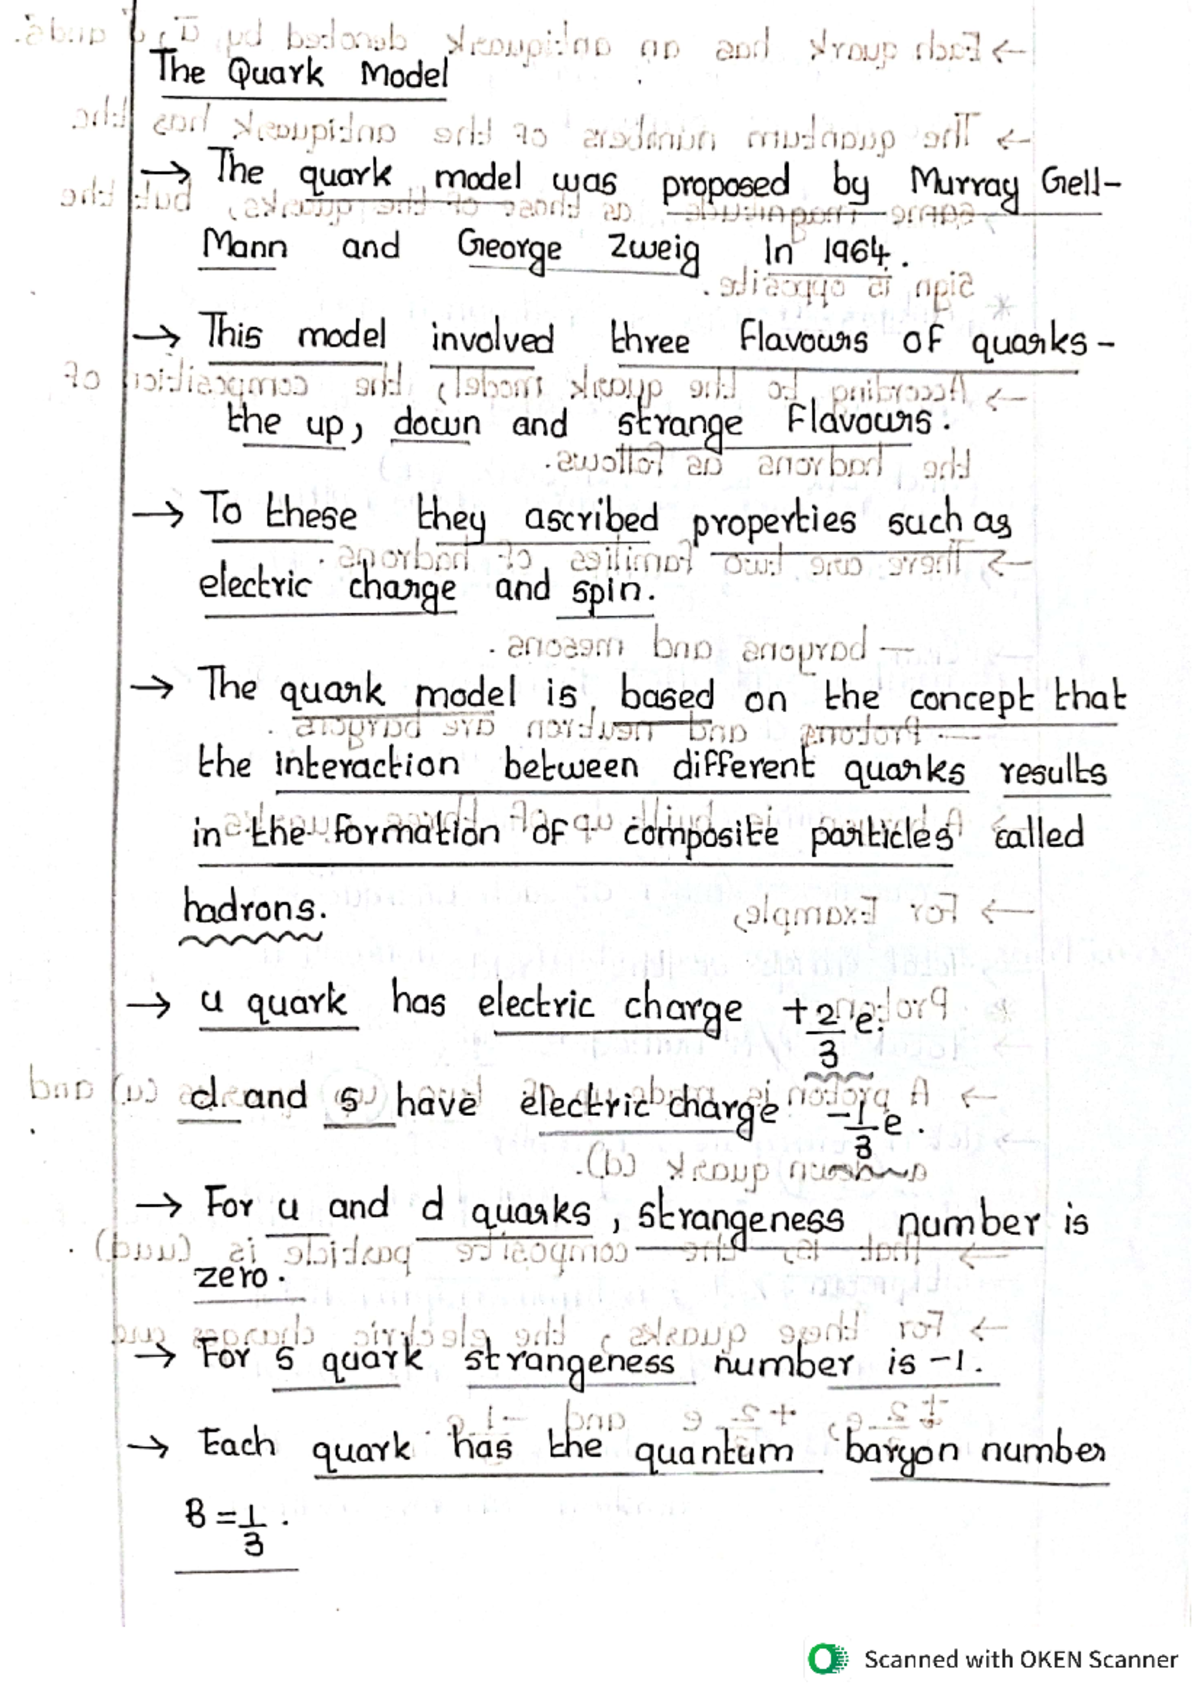 The Quark Model
→ The quark model was proposed by Murray Gell-
Mann and George Zweig In 1964.
→ This model involved three Flavours of quarks -
the up, down and strange Flavours.
→ To these they ascribed properties such as
electric charge and spin.
→ The quark model is based on the concept that
the interaction between different quarks results
in the formation of composite particles called
hadrons.
→ u quark has electric charge +2/3 e.
d and s have electric charge -1/3 e.
→ For u and d quarks, strangeness number is
zero.
→ For s quark strangeness number is -1.
→ Each quark has the quantum baryon number
B = 1/3.
Scanned with OKEN Scanner